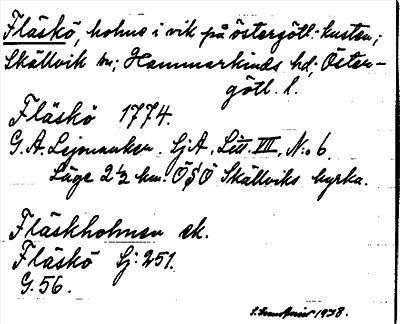 Fläskö, holme i vik på östergötl.-kusten;
Skällvik sn; Hammarkinds hd; Öster-
götl. l.
Fläskö 1774.
G. A. Lejonanker. Sj A, Litt. VIII, N:o 6.
Läge 2 1/2 km. ÖSÖ Skällviks kyrka.
Fläskholmen ek.
Fläskö Sj: 251.
G. 56.
1938.